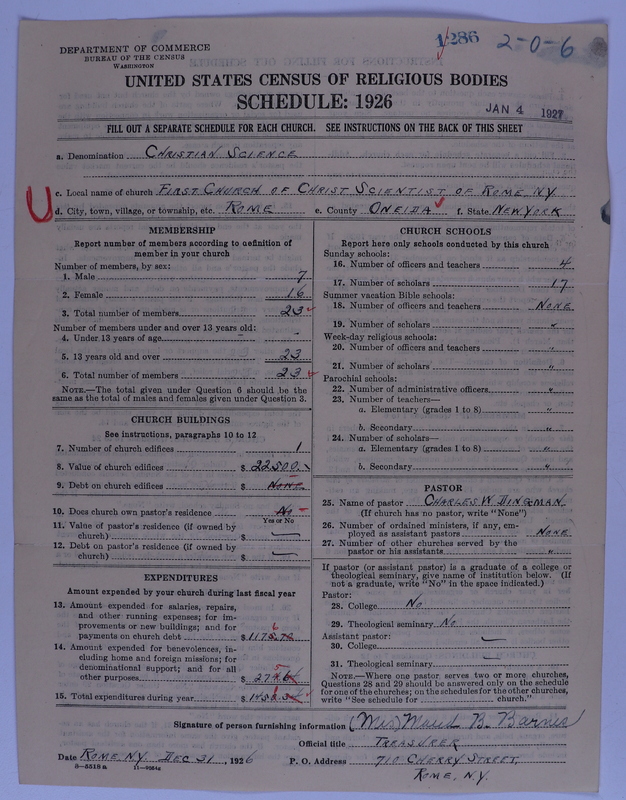 1286 2-0-6
DEPARTMENT OF COMMERCE
BUREAU OF THE CENSUS
WASHINGTON
UNITED STATES CENSUS OF RELIGIOUS BODIES
SCHEDULE: 1926
JAN 4 1927
FILL OUT A SEPARATE SCHEDULE FOR EACH CHURCH. SEE INSTRUCTIONS ON THE BACK OF THIS SHEET
a. Denomination CHRISTIAN SCIENCE
c. Local name of church FIRST CHURCH OF CHRIST SCIENTIST OF ROME, NY
U d. City, town, village, or township, etc. ROME e. County ONEIDA f. State NEW YORK
MEMBERSHIP
Report number of members according to definition of
member in your church
Number of members, by sex:
1. Male 7
2. Female 16
3. Total number of members 23
Number of members under and over 13 years old:
4. Under 13 years of age -
5. 13 years old and over 23
6. Total number of members 23
NOTE.—The total given under Question 6 should be the
same as the total of males and females given under Question 3.
CHURCH BUILDINGS
See instructions, paragraphs 10 to 12
7. Number of church edifices 1
8. Value of church edifices $ 22500.
9. Debt on church edifices $ NONE
10. Does church own pastor's residence No
Yes or No
11. Value of pastor's residence (if owned by
church) $ —
12. Debt on pastor's residence (if owned by
church) $ —
EXPENDITURES
Amount expended by your church during last fiscal year
13. Amount expended for salaries, repairs,
and other running expenses; for im-
provements or new buildings; and for
payments on church debt $
14. Amount expended for benevolences, in-
cluding home and foreign missions; for
denominational support; and for all
other purposes $
15. Total expenditures during year $
CHURCH SCHOOLS
Report here only schools conducted by this church
Sunday schools:
16. Number of officers and teachers 4
17. Number of scholars 17
Summer vacation Bible schools:
18. Number of officers and teachers NONE
19. Number of scholars "
Week-day religious schools:
20. Number of officers and teachers "
21. Number of scholars "
Parochial schools:
22. Number of administrative officers "
23. Number of teachers—
a. Elementary (grades 1 to 8) "
b. Secondary "
24. Number of scholars—
a. Elementary (grades 1 to 8) "
b. Secondary "
PASTOR
25. Name of pastor CHARLES W DINGMAN
(If church has no pastor, write "None")
26. Number of ordained ministers, if any, em-
ployed as assistant pastors NONE
27. Number of other churches served by the
pastor or his assistants "
If pastor (or assistant pastor) is a graduate of a college or
theological seminary, give name of institution below. (If
not a graduate, write "No" in the space indicated.)
Pastor:
28. College No
29. Theological seminary No
Assistant pastor:
30. College —
31. Theological seminary —
NOTE.—Where one pastor serves two or more churches,
Questions 28 and 29 should be answered only on the schedule
for one of the churches; on the schedules for the other churches,
write "See schedule for church."
Signature of person furnishing information (Mrs) Maud B. Barnes
Official title TREASURER
Date ROME NY DEC 31, 1926 P. O. Address 710 CHERRY STREET,
8-5518a ROME, N.Y.